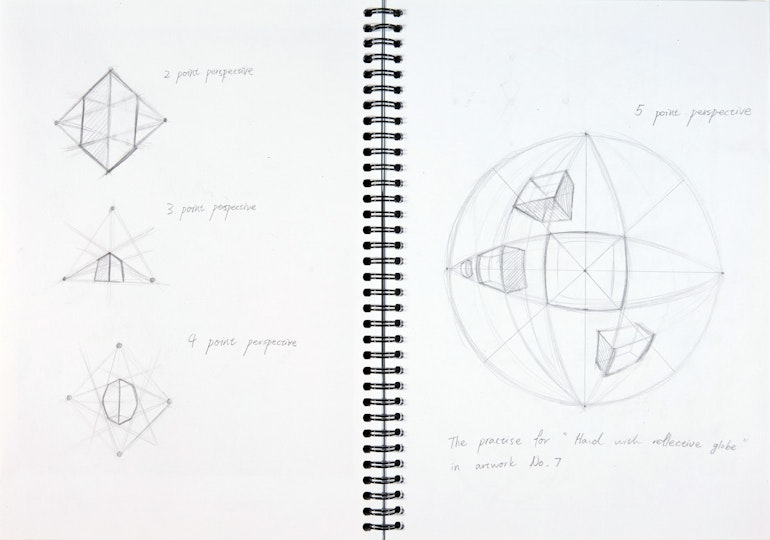 2 point perspective
3 point perspective
4 point perspective
5 point perspective
The practise for "Hand with reflective globe"
in artwork No. 7